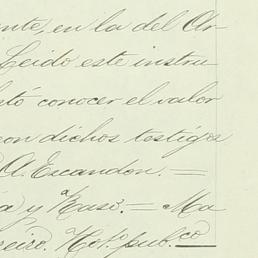 ente, en la del Ar-
Leido este instru
tó conocer el valor
con dichos testigos
A. Escandon. =
a y Haso. = Ma
eiro. Not.o pub.co